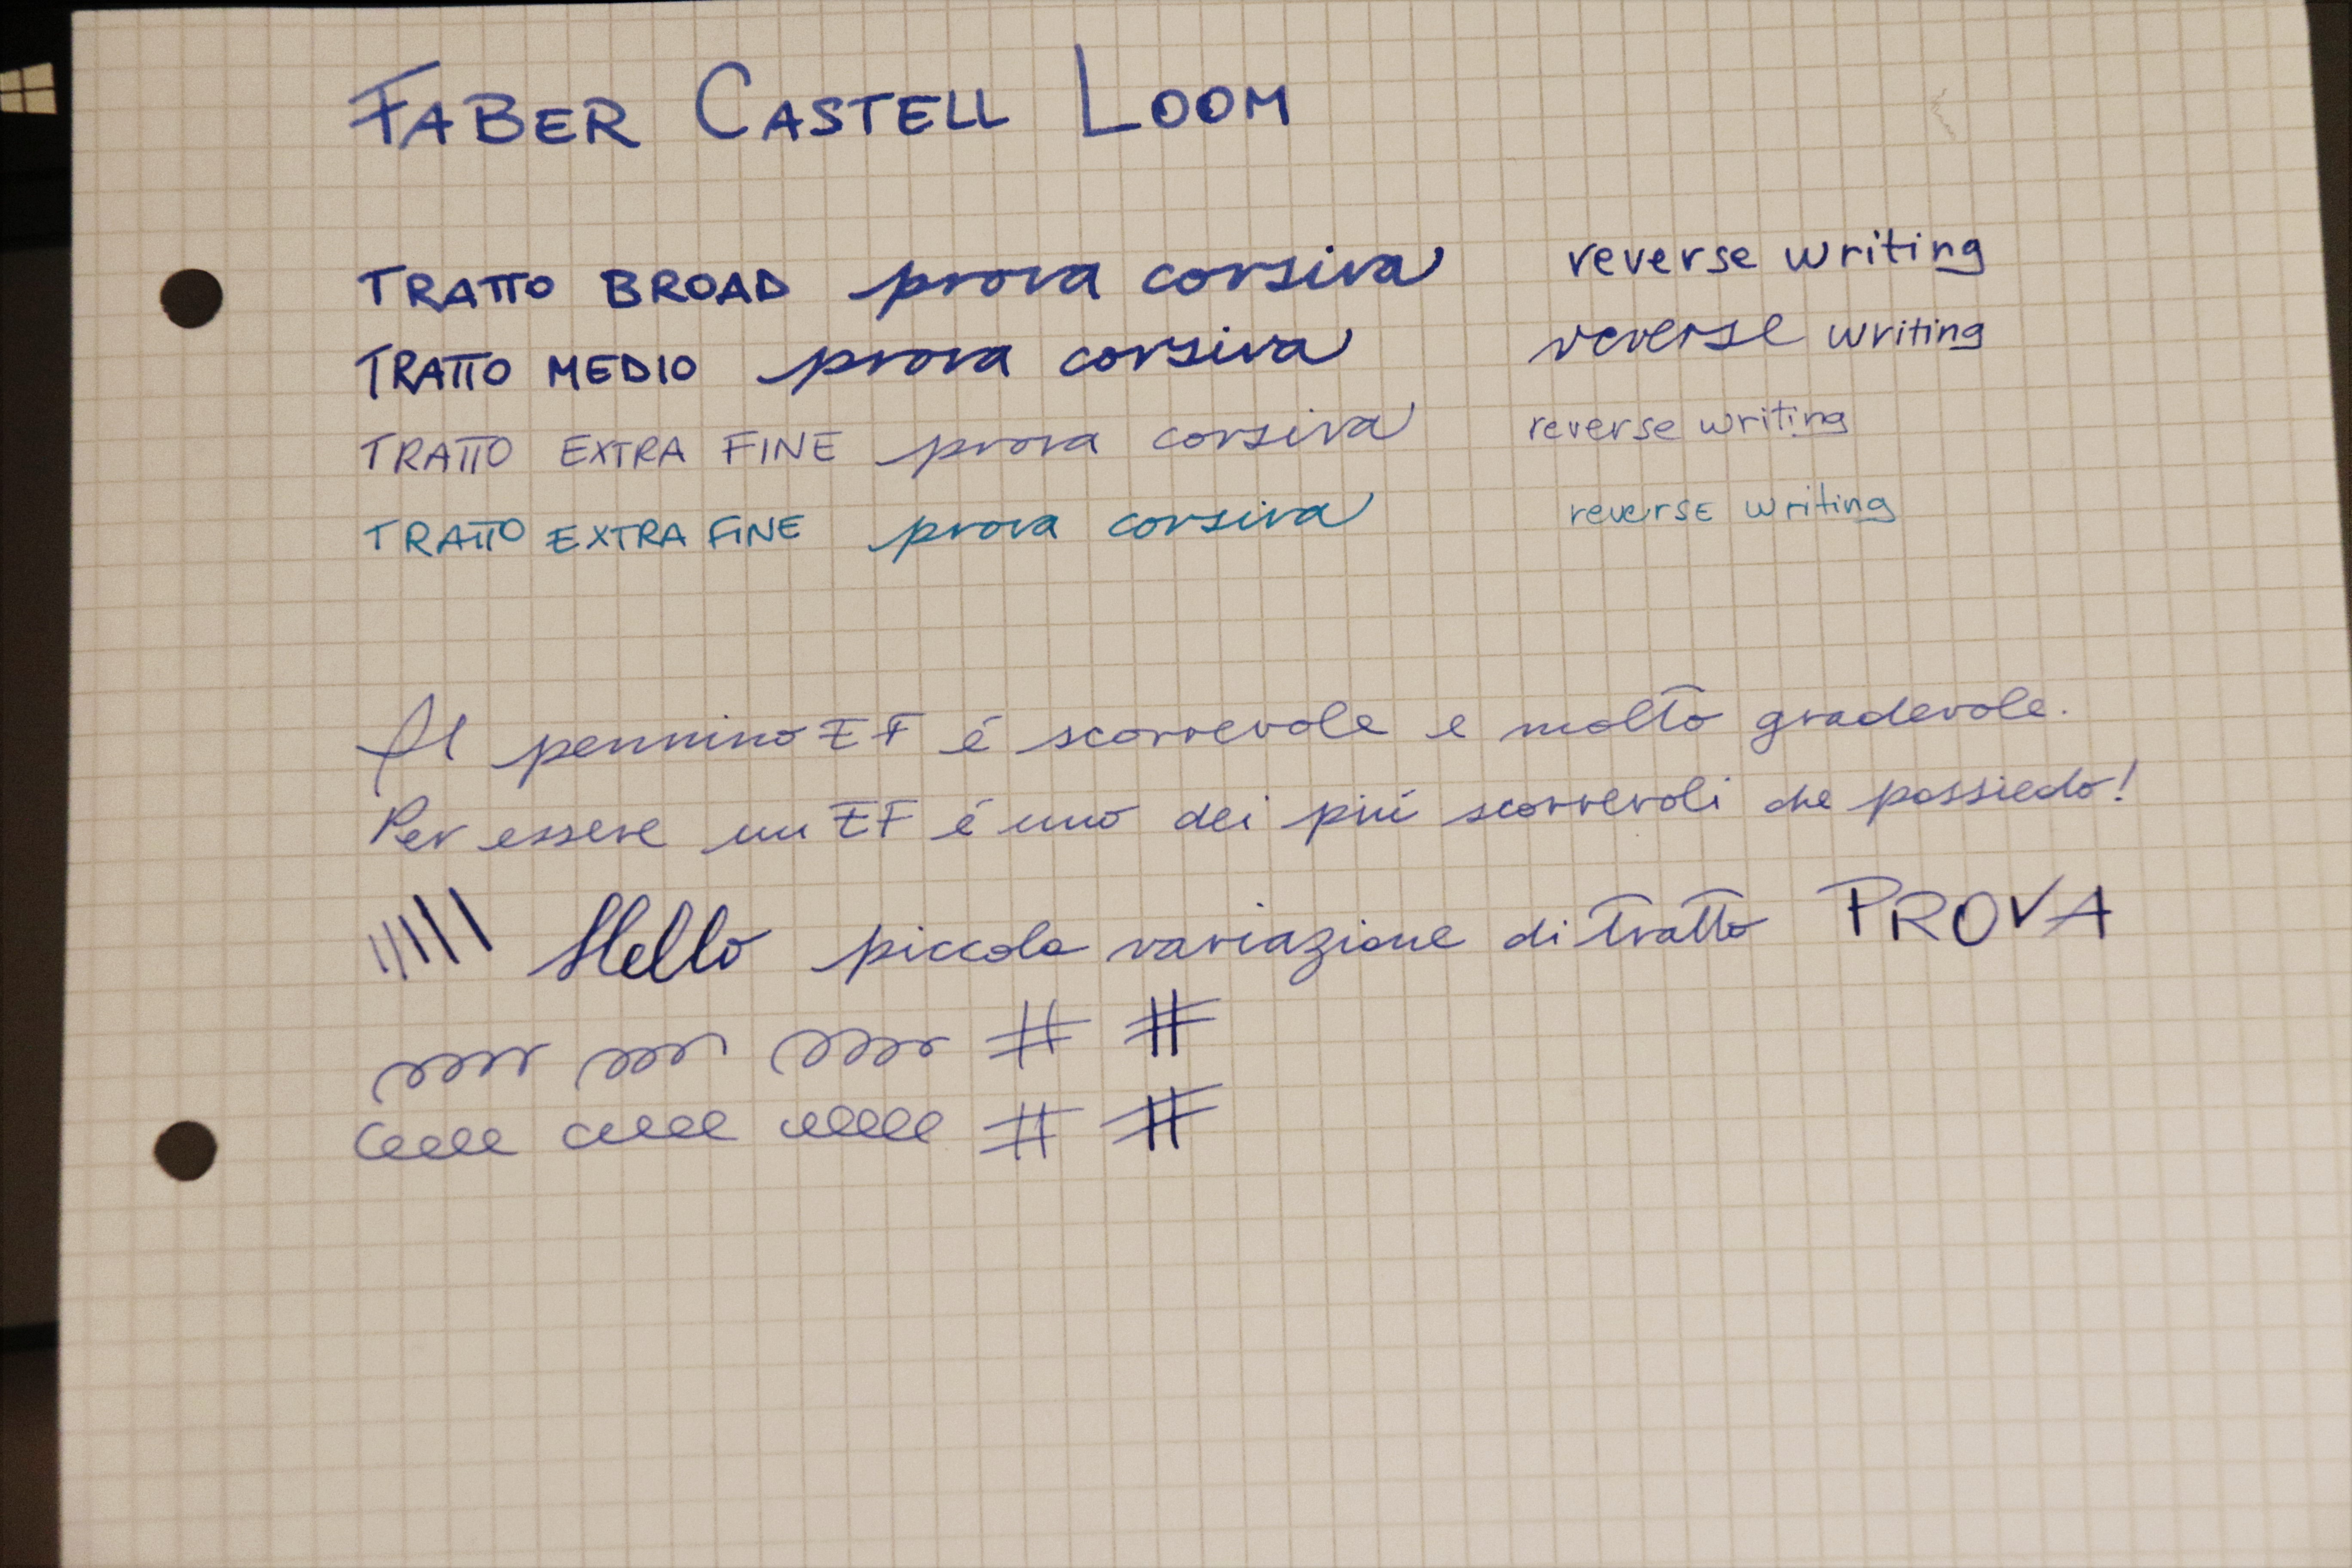 FABER CASTELL LOOM
TRATTO BROAD prova corsiva reverse writing
TRATTO MEDIO prova corsiva reverse writing
TRATTO EXTRA FINE prova corsiva reverse writing
TRATTO EXTRA FINE prova corsiva reverse writing
Il pennino EF é scorrevole e molto gradevole.
Per essere un EF é uno dei piú scorrevoli che possiedo!
Hello piccola variazione di tratto PROVA
# #
# #